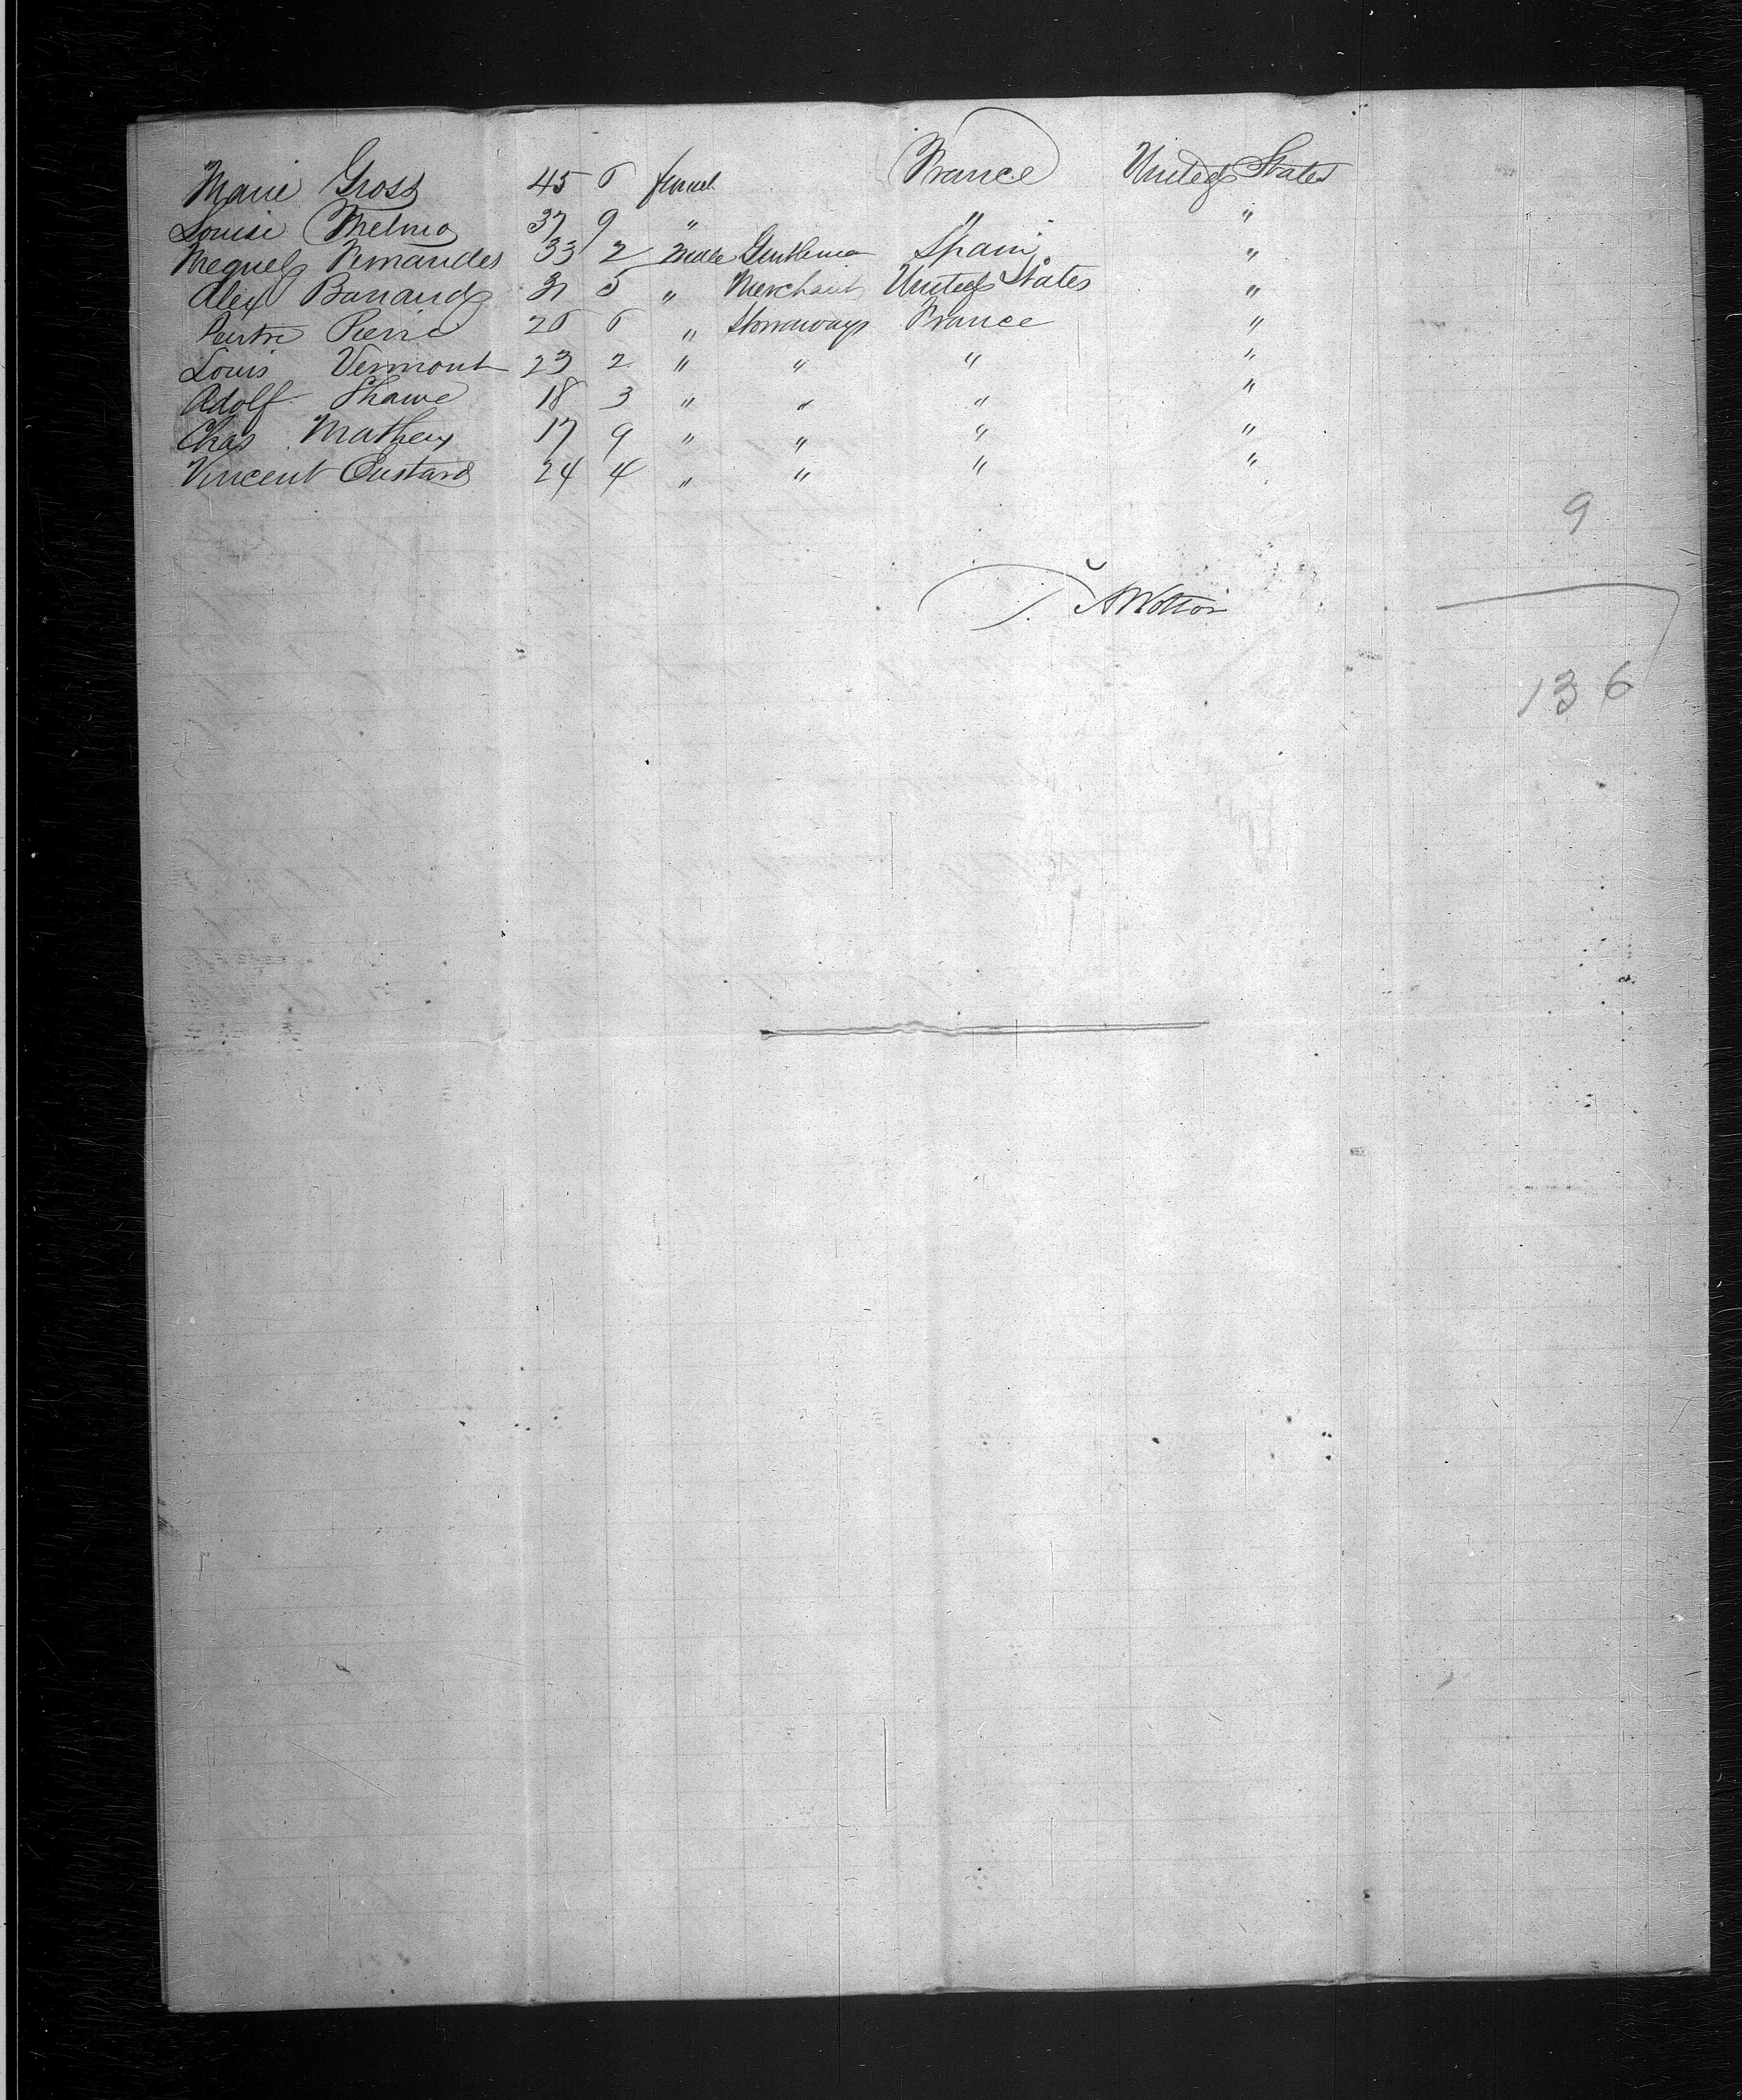 Marie Gross 45 6 femal France United States
Louise Thelma 37 9 " " "
Mequel Fernandes 33 2 Male Gentleman Spain "
Alex Barrand 31 5 " Merchant United States "
Pierre 26 6 " Stowaways France "
Louis Vermont 23 2 " " " "
Adolf Shawe 18 3 " " " "
Chas Mathey 17 9 " " " "
Vincent Custard 24 4 " " " "
9
J. A Wotton
136